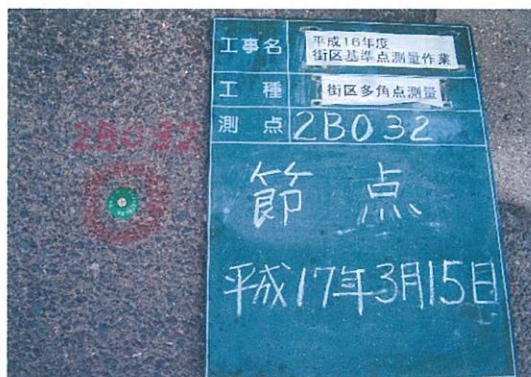 工事名 平成16年度
街区基準点測量作業
工種 街区多角点測量
測点 2B032
節点
平成17年3月15日
2B032